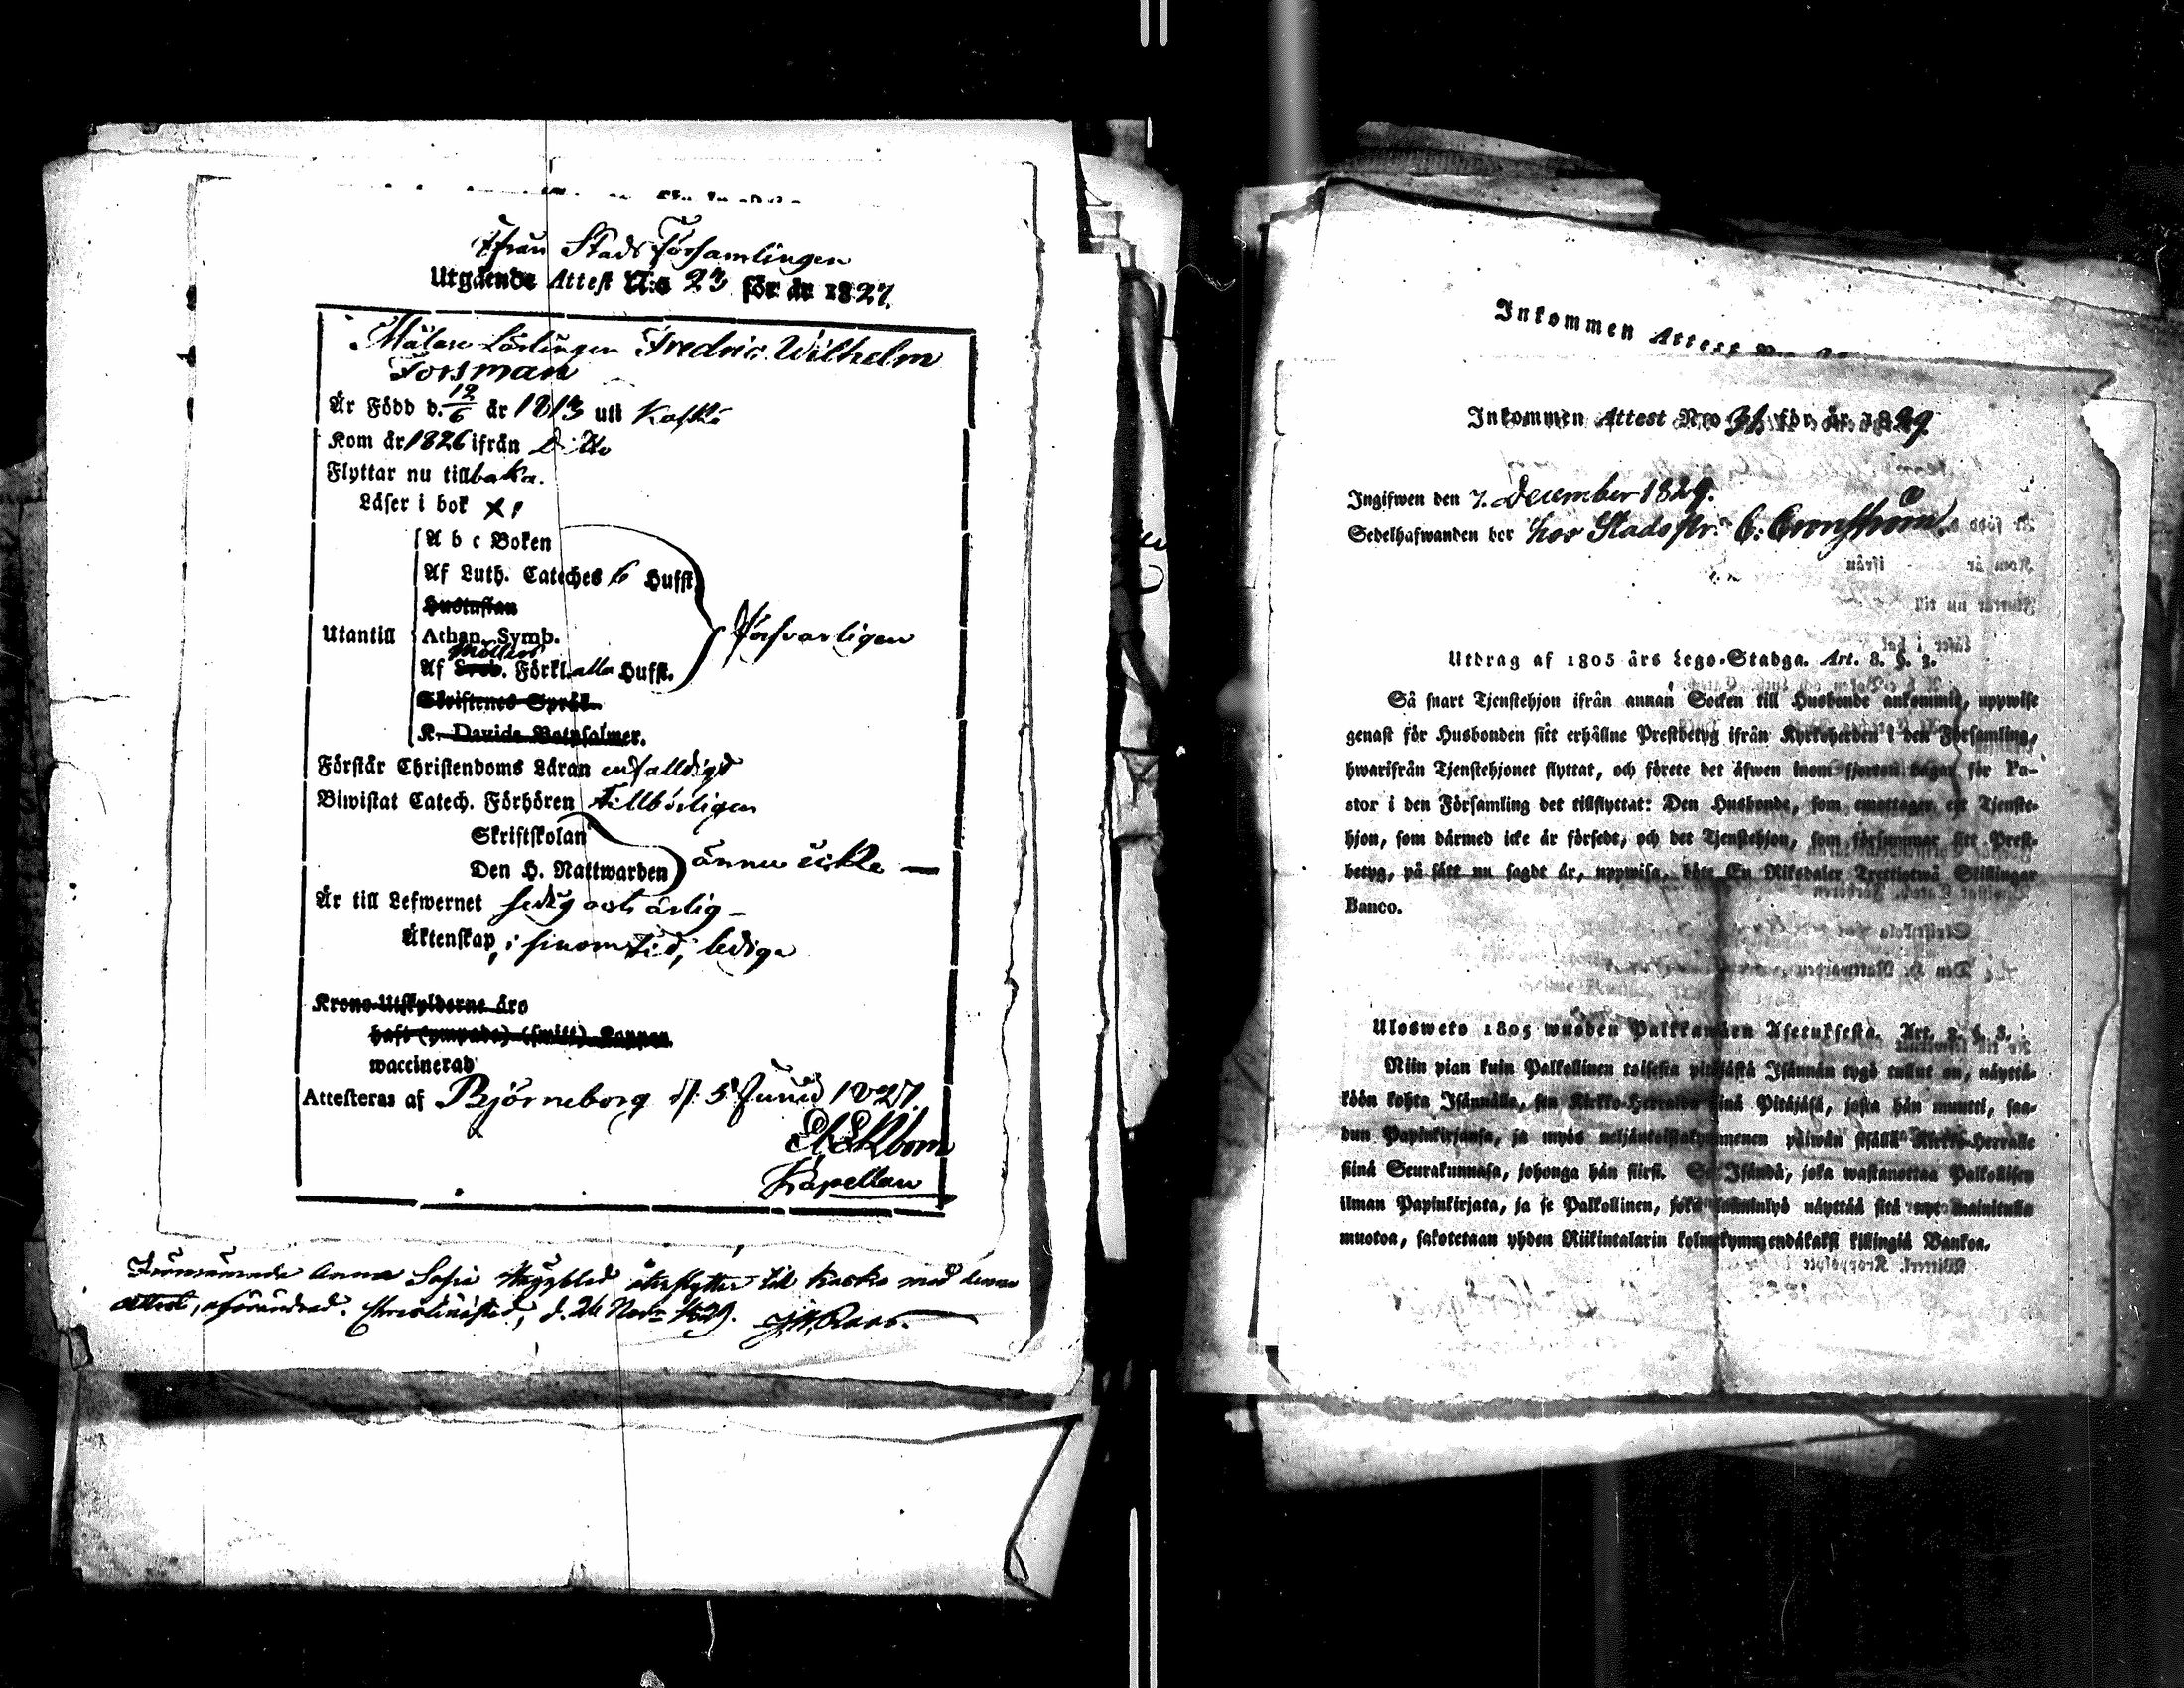 Ifrån Stads Församlingen
Utgående Attest N:o 23 för år 1827.
Målare Lärlingen Fredric Wilhelm
Forsman
Är Född d. 12/6 år 1813 uti Kaskö
Kom år 1826 ifrån Ditto
Flyttar nu tillbaka.
Läser i bok
Utantill
A b c Boken
Af Luth. Cateches 6 Hufst.
Hustaflan
Athan. Symb.
Möllers
Af Sveb. Förkl. alla Hufst.
Skriftenes Språk.
K. Davids Botpsalmer.
försvarligen
Förstår Christendoms Läran enfalldigt
Biwistat Catech. Förhören Tillbörligen
Skriftskolan
Den H. Nattwarden
ännu icke —
Är till Lefwernet sedig och ärlig –
Äktenskap, i sinom tid, lediga
Krono-Utskylderne äro
haft (ympade) (smitt) Koppor
waccinerad
Attesteras af Björneborg d. 5 Junii 1827.
Ekbom
Kapellan
Anna Sofia Häggblad återflyttar til Kaskö med denna
attest, oförändrad. Christinestad, d. 24 Novr 1829.
Inkommen Attest
Inkommen Attest Nro 31 för år 1829
Ingifwen den 7. December 1829.
Sedelhafwanden bor hos Stads
Utdrag af 1805 års Lego-Stadga. Art. 8. §. 3.
Så snart Tjenstehjon ifrån annan Socken till Husbonde ankommit, uppwise
genast för Husbonden sitt erhållne Prestbetyg ifrån Kyrkoherden i den Församling,
hwarifrån Tjenstehjonet flyttat, och förete det äfwen inom fjorton dagar för Pa-
stor i den Församling det tillflyttat: Den Husbonde, som emottager ett Tjenste-
hjon, som därmed icke är försedt, och det Tjenstehjon, som försummar sitt Prest-
betyg, på sätt nu sagdt är, uppwisa, böte En Riksdaler Trettiotwå Skillingar
Banco.
Ulosweto 1805 wuoden Palkkawäen Asetuksesta. Art. 8. §. 3.
Niin pian kuin Palkollinen toisesta pitäjästä Isännän tygö tullut on, näyttä-
köön kohta Isännälle, sen Kirkko-Herralda siinä Pitäjäsä, josta hän muutti, saa-
dun Papinkirjansa, ja myös neljäntoistakymmenen päiwän sisällä Kirkko-Herralle
siinä Seurakunnasa, johonga hän siirsi. Se Isändä, joka wastanottaa Palkollisen
ilman Papinkirjata, ja se Palkollinen, joka laiminlyö näyttää sitä nyt mainitulla
muotoa, sakotetaan yhden Riikintalarin kolmekymmendäkaksi killingiä Bankoa.